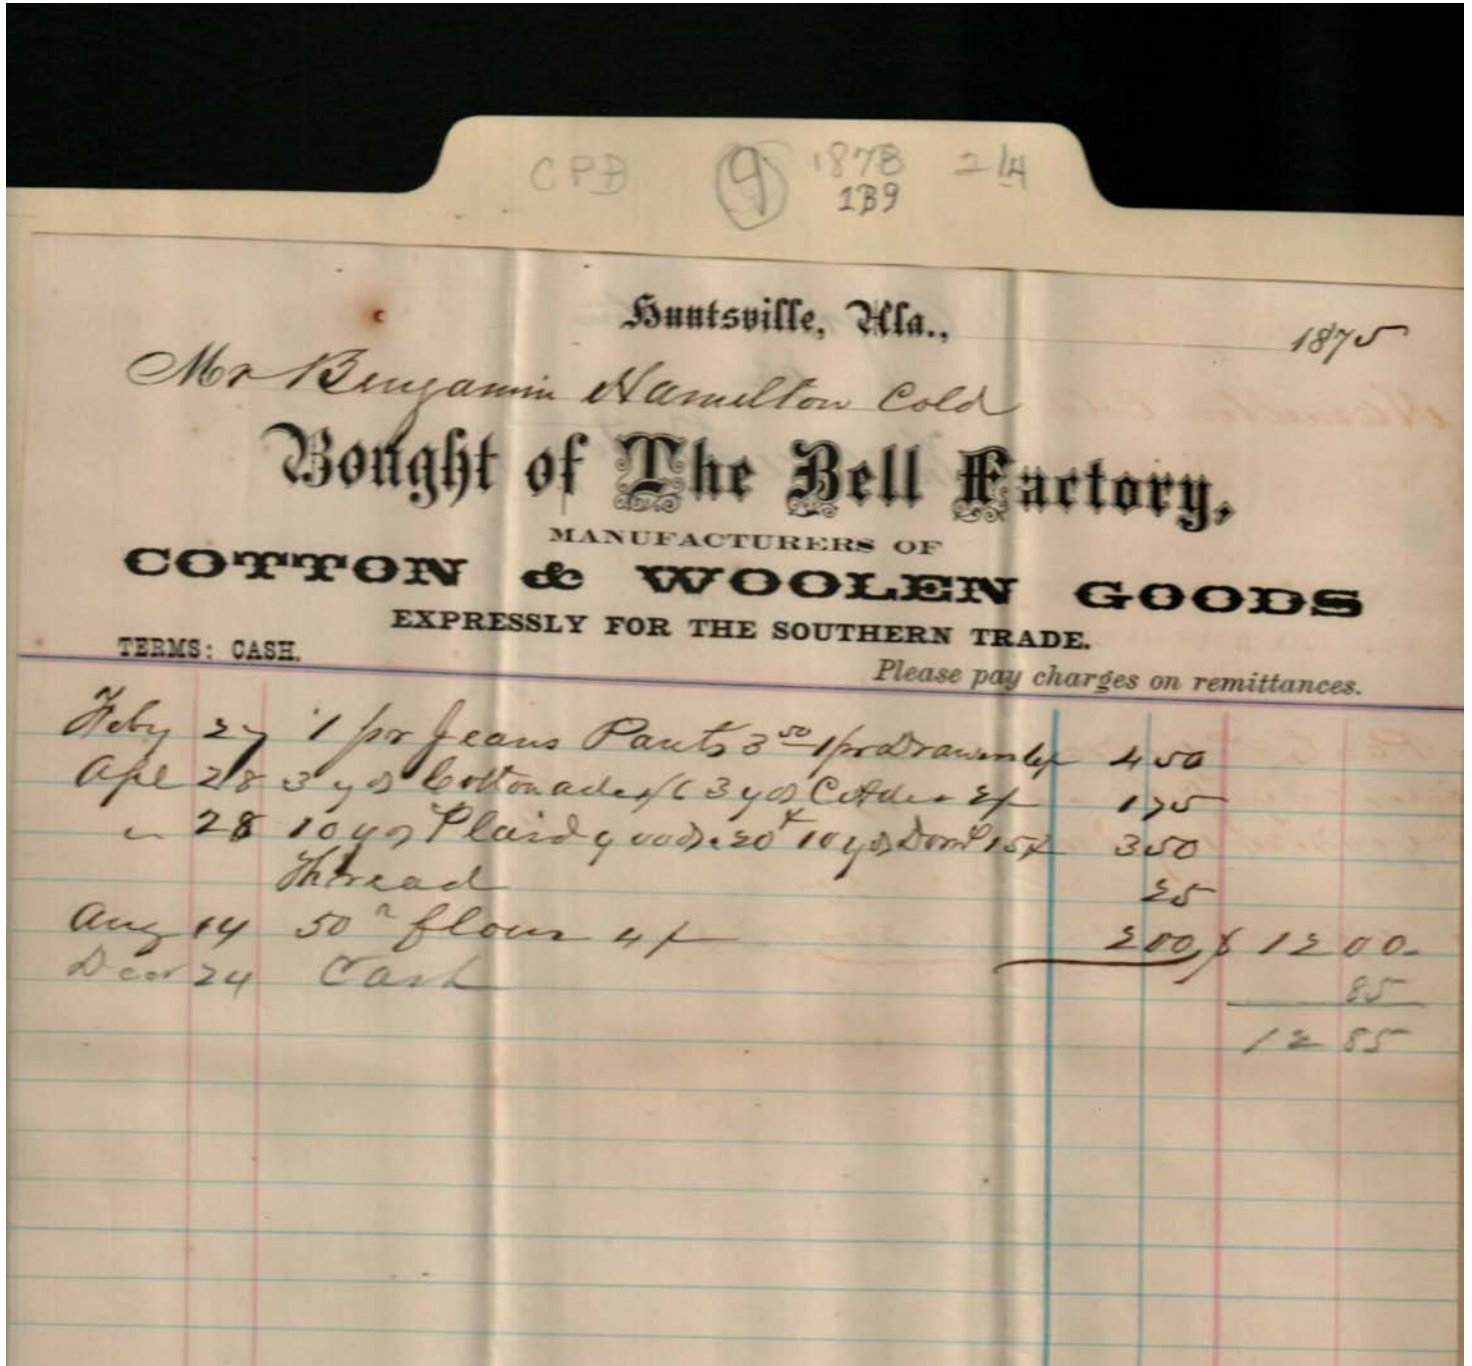 CPB 9 1878 2/4
1B9
Huntsville, Ala., 1875
Mr Benjamin Hamilton Cold
Bought of The Bell Factory,
MANUFACTURERS OF
COTTON & WOOLEN GOODS
EXPRESSLY FOR THE SOUTHERN TRADE.
TERMS: CASH.
Please pay charges on remittances.
Feby 27 1 pr Jeans Pants 3 50 1 pr Drawers 4 50
Apl 28 3 yds Cottonades 3 yds 2/ 1 75
" 28 10 yds Plaid goods 20 10 yds Dom 15 3 50
Thread 25
Aug 14 50 flour 4/ 2 00 $ 12 00
Decr 24 Cash 85
12 85